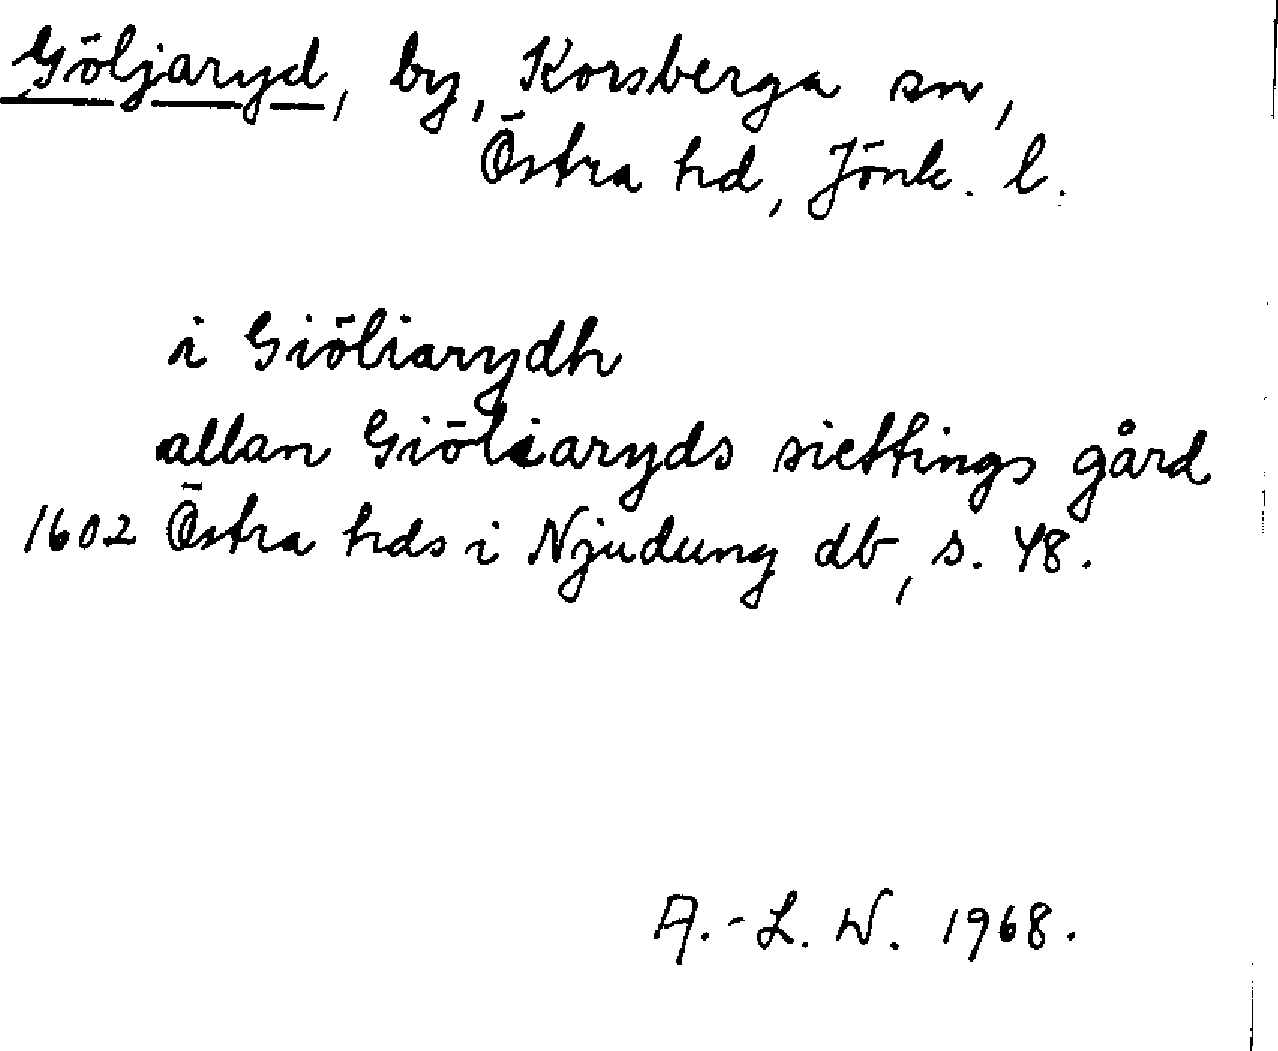 Göljaryd, by, Korsberga sn,
Östra hd, Jönk. l.
i Giöliarydh
allan Giöliaryds siettings gård
1602 Östra hds i Njudung db, s. 48.
A.-L. W. 1968.